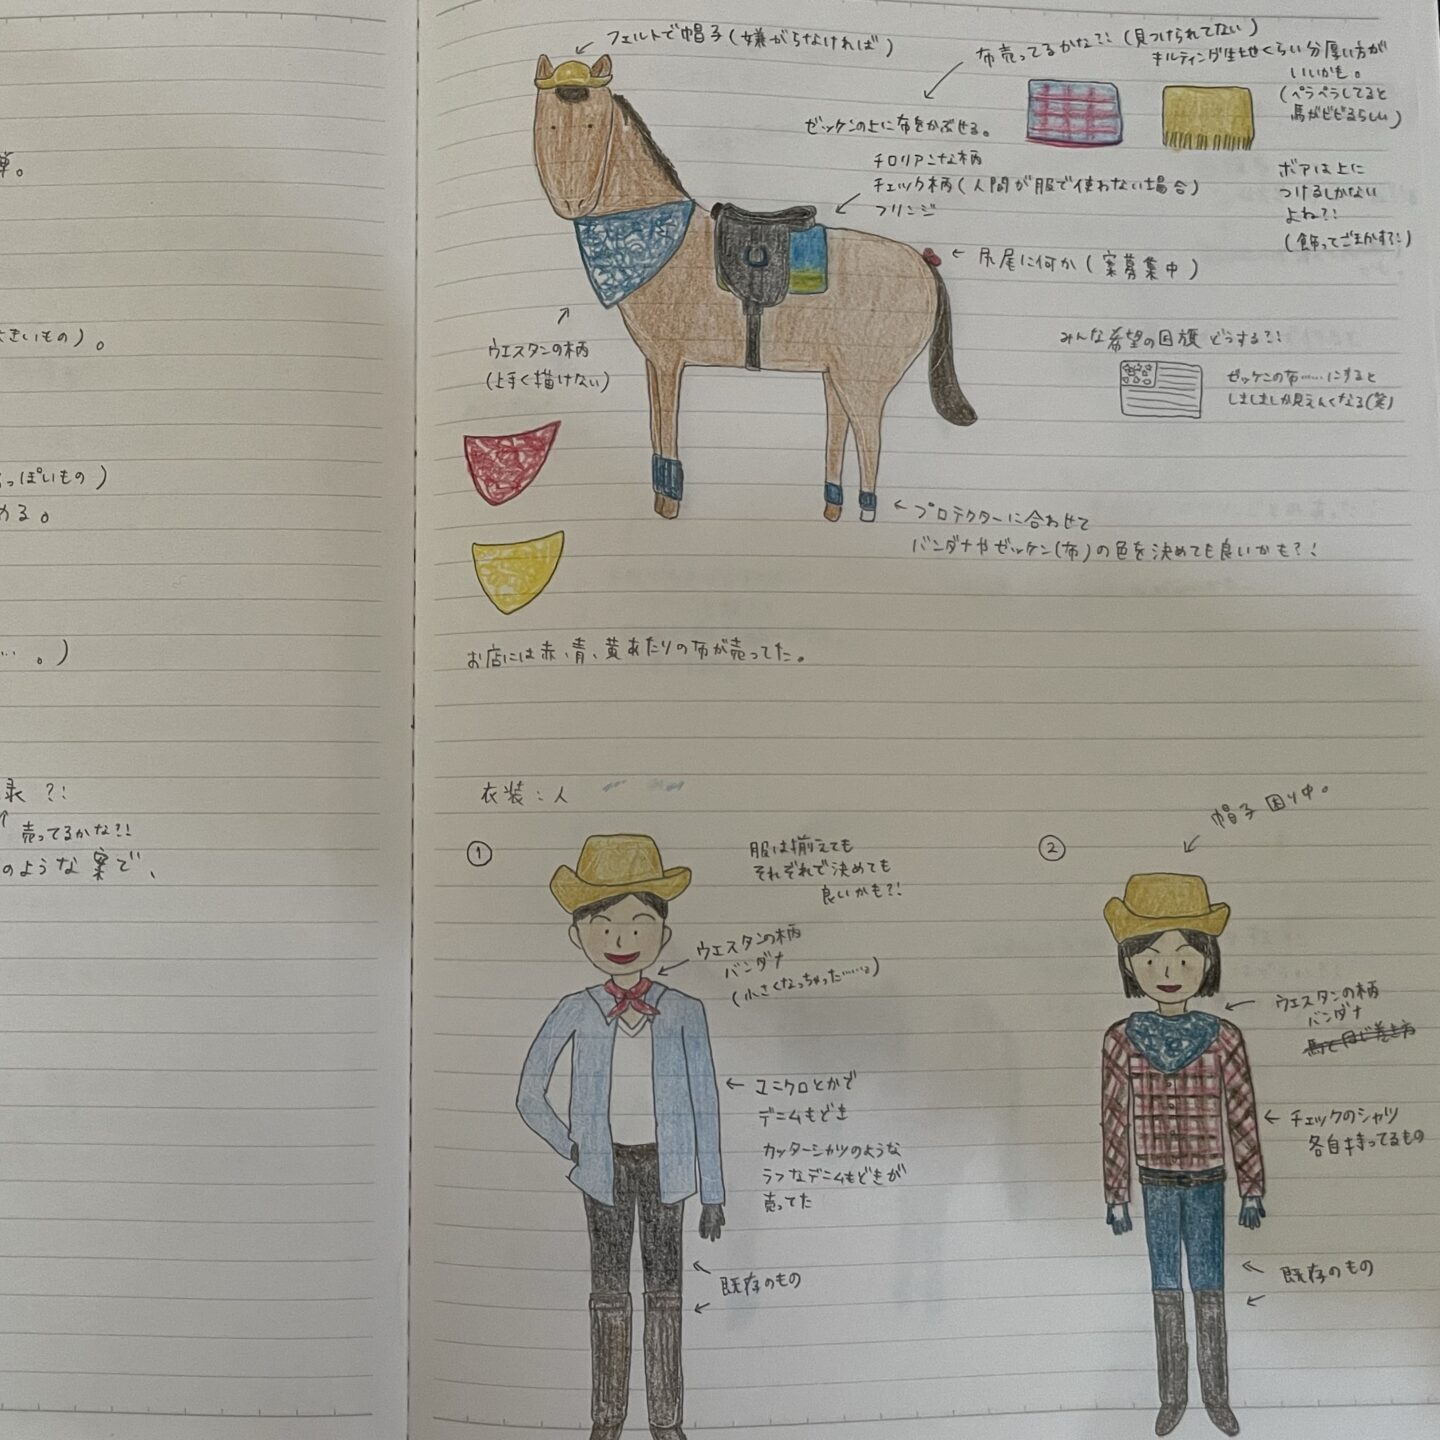 単。
大きいもの)。
っぽいもの)
める。
…。)
録?!
↑ 売ってるかな?!
のような案で、
フェルトで帽子(嫌がらなければ)
布売ってるかな?!(見つけられてない)
キルティング生地くらい分厚い方が
いいかも。
(ペラペラしてると
馬がビビるらしい)
ゼッケンの上に布をかぶせる。
チロリアンな柄
チェック柄(人間が服で使わない場合)
フリンジ
ボアは上に
つけるしかない
よね?!
(飾ってごまかす?!)
尻尾に何か(案募集中)
ウエスタンの柄
(上手く描けない)
みんな希望の国旗どうする?!
ゼッケンの布……にすると
しましましか見えんくなる(笑)
プロテクターに合わせて
バンダナやゼッケン(布)の色を決めても良いかも?!
お店には赤、青、黄あたりの布が売ってた。
衣装:人
①
服は揃えても
それぞれで決めても
良いかも?!
ウエスタンの柄
バンダナ
(小さくなっちゃった……。)
ユニクロとかで
デニムもどき
カッターシャツのような
ラフなデニムもどきが
売ってた
既存のもの
②
帽子困り中。
ウエスタンの柄
バンダナ
馬と同じ巻き方
チェックのシャツ
各自持ってるもの
既存のもの